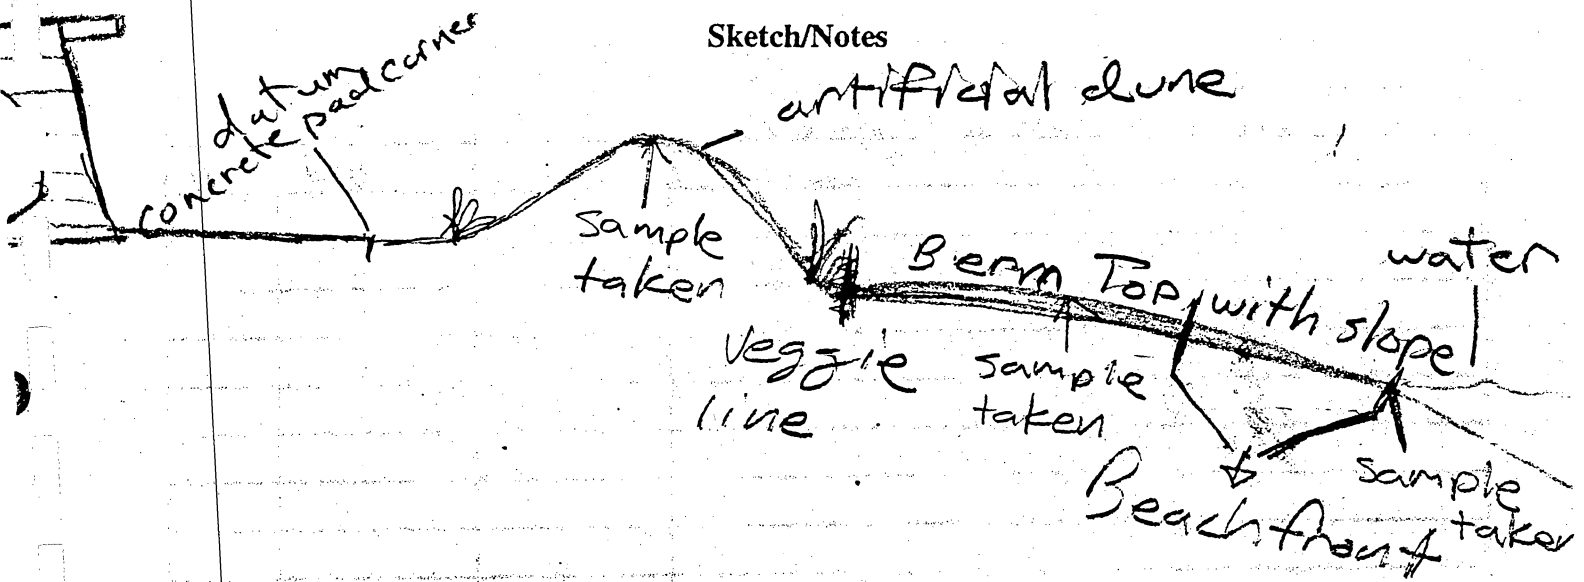 Sketch/Notes
datum
concrete pad corner
artificial dune
sample
taken
Berm Top with slope
water
Veggie
line
sample
taken
sample
taken
Beach front